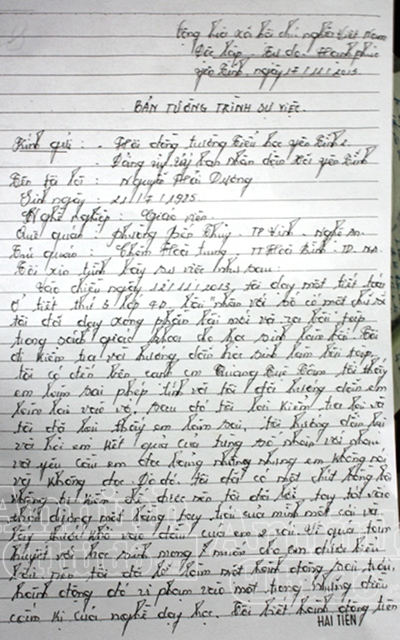 Cộng hòa xã hội chủ nghĩa Việt Nam
Độc lập - Tự do - Hạnh phúc
Yên Đình, ngày 17/12/2013
BẢN TƯỜNG TRÌNH SỰ VIỆC
Kính gửi: - Hội đồng trường Tiểu học
- Đảng ủy, Ủy ban nhân dân xã
Tên tôi là : Nguyễn Hải Dương
Sinh ngày : 21/7/1975.
Nghề nghiệp : Giáo viên.
Quê quán : Phường Bến Thủy - TP Vinh - Nghệ An.
Trú quán :
Tôi xin trình bày sự việc như sau:
Vào chiều ngày 12/12/2013, tôi dạy một tiết toán
Ở tiết thứ 3 lớp 4D. bài "nhân với số có một chữ số
tôi đã dạy xong phần bài mới và ra bài tập
trong sách giáo khoa cho học sinh làm bài. Tôi
đi kiểm tra và hướng dẫn học sinh làm bài tập.
tôi có đến bên cạnh em Quang tôi thấy
em làm sai phép tính và tôi đã hướng dẫn em
làm lại vào vở, sau đó tôi lại kiểm tra lại và
tôi đã lại thấy em làm sai, tôi hướng dẫn lại
và hỏi em kết quả của từng số nhân với nhau
và yêu cầu em đọc bảng nhân nhưng em không nói
và không đọc. Do đó, tôi đã có một chút nóng
không bị kiềm chế được nên tôi đã
một bằng tay trái của mình một cái và
lấy thước vào đầu của em 2 cái. Vì quá tâm
huyết với học sinh mong muốn cho em được hiểu
bài nên tôi đã làm một hành động sai trái,
hành động đó vi phạm vào một trong những điều
cấm kị của nghề dạy học. Tôi biết hành động trên
HẢI TIẾN